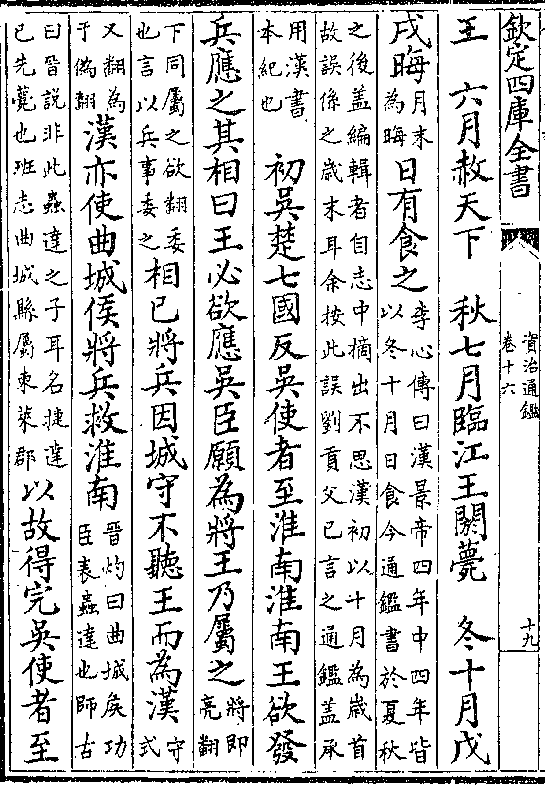 欽定四庫全書
資治通鑑
卷十六
十九
王　六月赦天下　秋七月臨江王閼薨　冬十月戊
戌晦月末為晦日有食之李心傳曰漢景帝四年中四年皆以冬十月日食今通鑑書於夏秋
之後盖編輯者自志中摘出不思漢初以十月為歲首故誤係之歲末耳余按此誤劉貢父已言之通鑑盖承
用漢書本紀也　初吳楚七國反吳使者至淮南淮南王欲發
兵應之其相曰王必欲應吳臣願為將王乃屬之將即亮翻
下同屬之欲翻委也言以兵事委之相已將兵因城守不聽王而為漢守式
又翻為于偽翻漢亦使曲城侯將兵救淮南晉灼曰曲城侯功臣表蟲達也師古
曰晉説非此蟲達之子耳名捷達已先薨也班志曲城縣屬東萊郡以故得完吳使者至